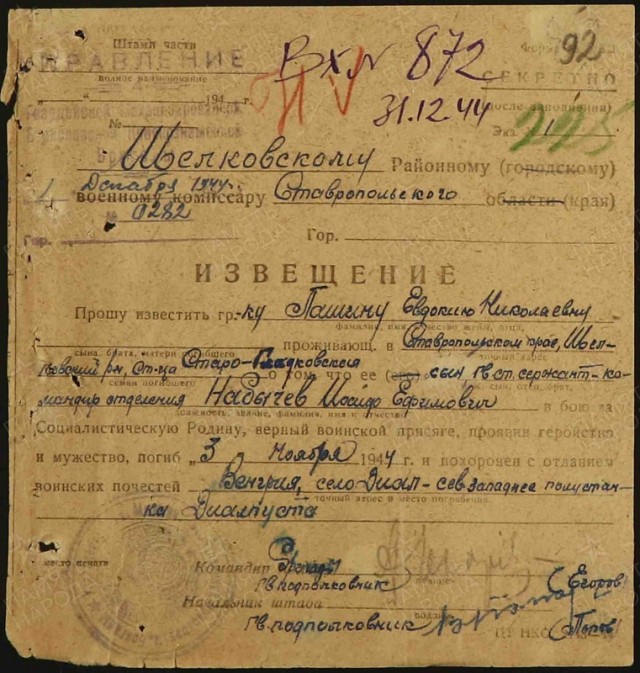 Штамп части
УПРАВЛЕНИЕ
полное наименование
Вх № 872
31.12.44
92
СЕКРЕТНО
(после заполнения)
Экз.
194 г.
№
Шелковскому Районному (городскому)
1 Декабря 1944г. военному комиссару Ставропольского области (края)
№ 0282
Гор. Гор.
ИЗВЕЩЕНИЕ
Прошу известить гр-ку Пашину Евдокию Николаевну
фамилия, имя, отчество жены, отца,
проживающ. в Ставропольском крае, Шел-
сына, брата, матери погибшего
ковский рн, ст-ца Старо-Гладковская о том что ее (его) сын гв.ст.сержант-ко-
семьи погибшего
мандир отделения Набычев Иосиф Ефимович в бою за
должность, звание, фамилия, имя и отчество
Социалистическую Родину, верный воинской присяге, проявив геройство
и мужество, погиб 3 ноября 1944 и похоронен с отданием
воинских почестей Венгрия, село Диал-сев.западнее полустан-
точный адрес и место погребения.
ка Диалпуста
место печати
Командир бригады
гв.подполковник (Егоров)
Начальник штаба
гв.подполковник (Попов)